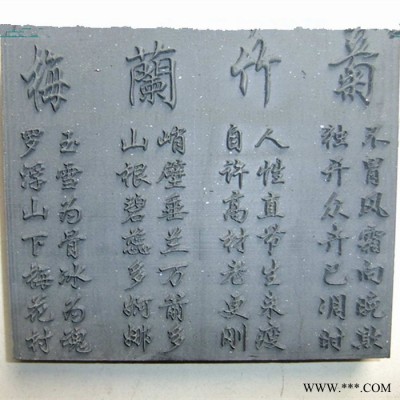 菊
不畏风霜向晚欺
独开众卉已凋时
竹
人性直节生来瘦
自许高材老更刚
蘭
峭壁垂兰万箭多
山根碧蕊多婀娜
梅
玉雪为骨冰为魂
罗浮山下梅花村
WWW.***.COM